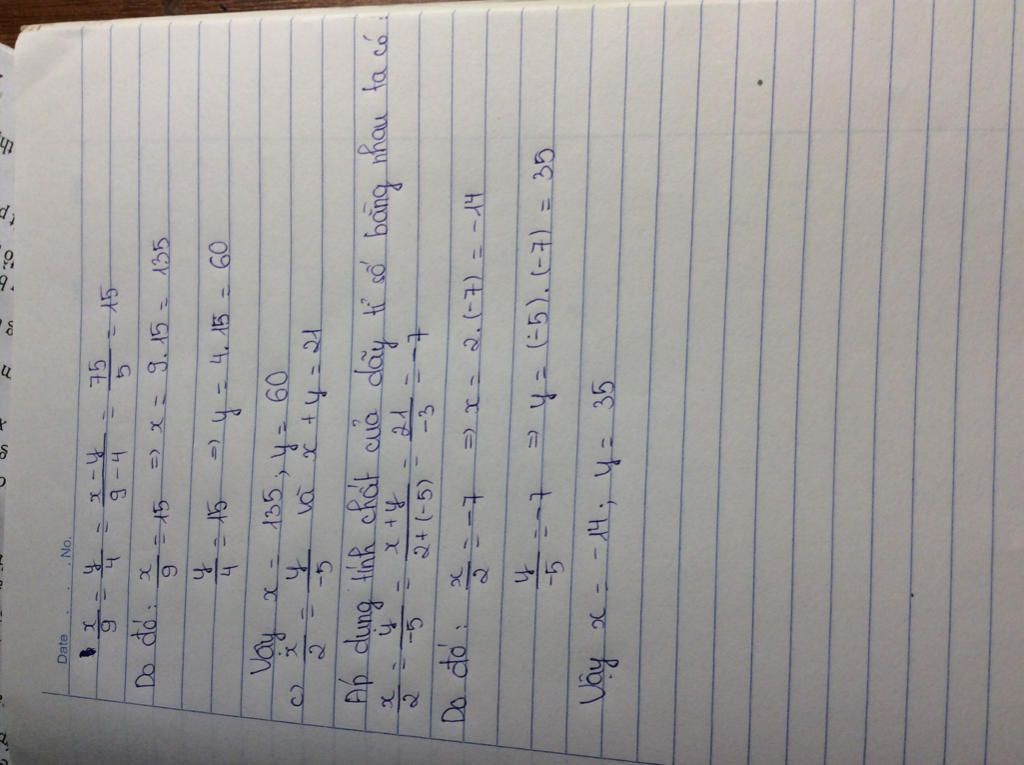 Date . . . No.
x/9 = y/4 = x-y/9-4 = 75/5 = 15
Do đó: x/9 = 15 => x = 9.15 = 135
y/4 = 15 => y = 4.15 = 60
Vậy x = 135, y = 60
c) x/2 = y/-5 và x + y = 21
Áp dụng tính chất của dãy tỉ số bằng nhau ta có:
x/2 = y/-5 = x+y/2+(-5) = 21/-3 = -7
Do đó: x/2 = -7 => x = 2.(-7) = -14
y/-5 = -7 => y = (-5).(-7) = 35
Vậy x = -14; y = 35